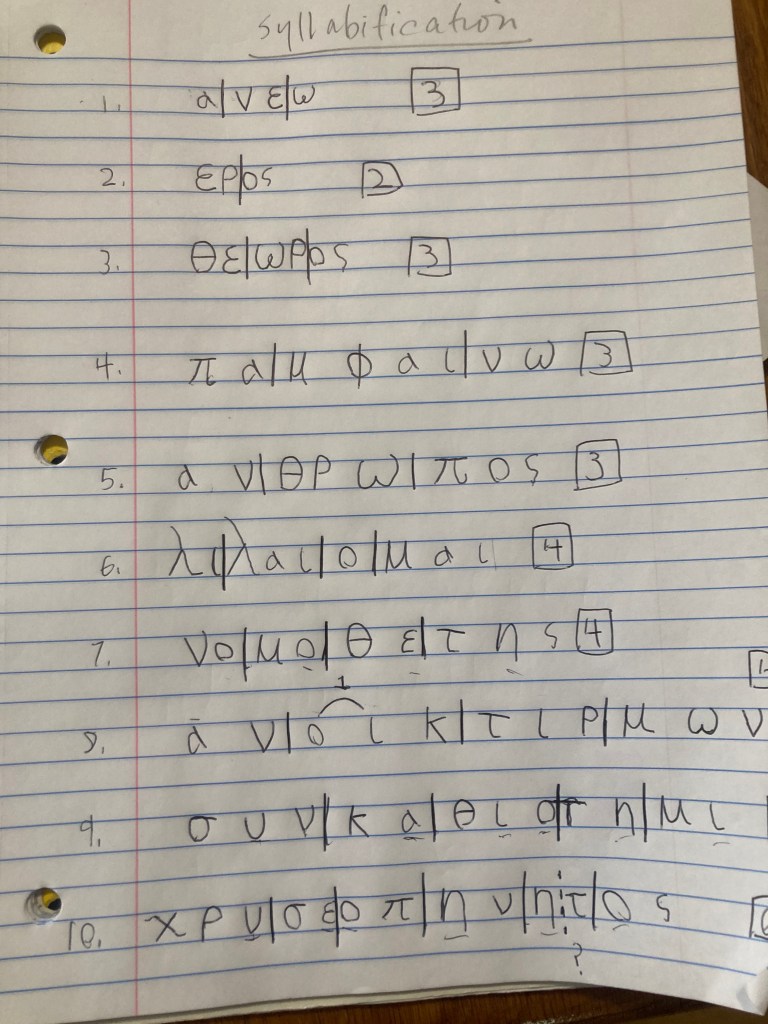 syllabification
1. α|νε|ω 3
2. ερ|ος 2
3. θε|ωρ|ος 3
4. πα|μφαι|νω 3
5. αν|θρω|πος 3
6. λι|λαι|ο|μαι 4
7. νο|μο|θε|της 4
1
8. αν|οικ|τιρ|μων
9. συν|κα|θισ|τη|μι
10. χρυ|σε|οπ|ην|ητ|ος
?